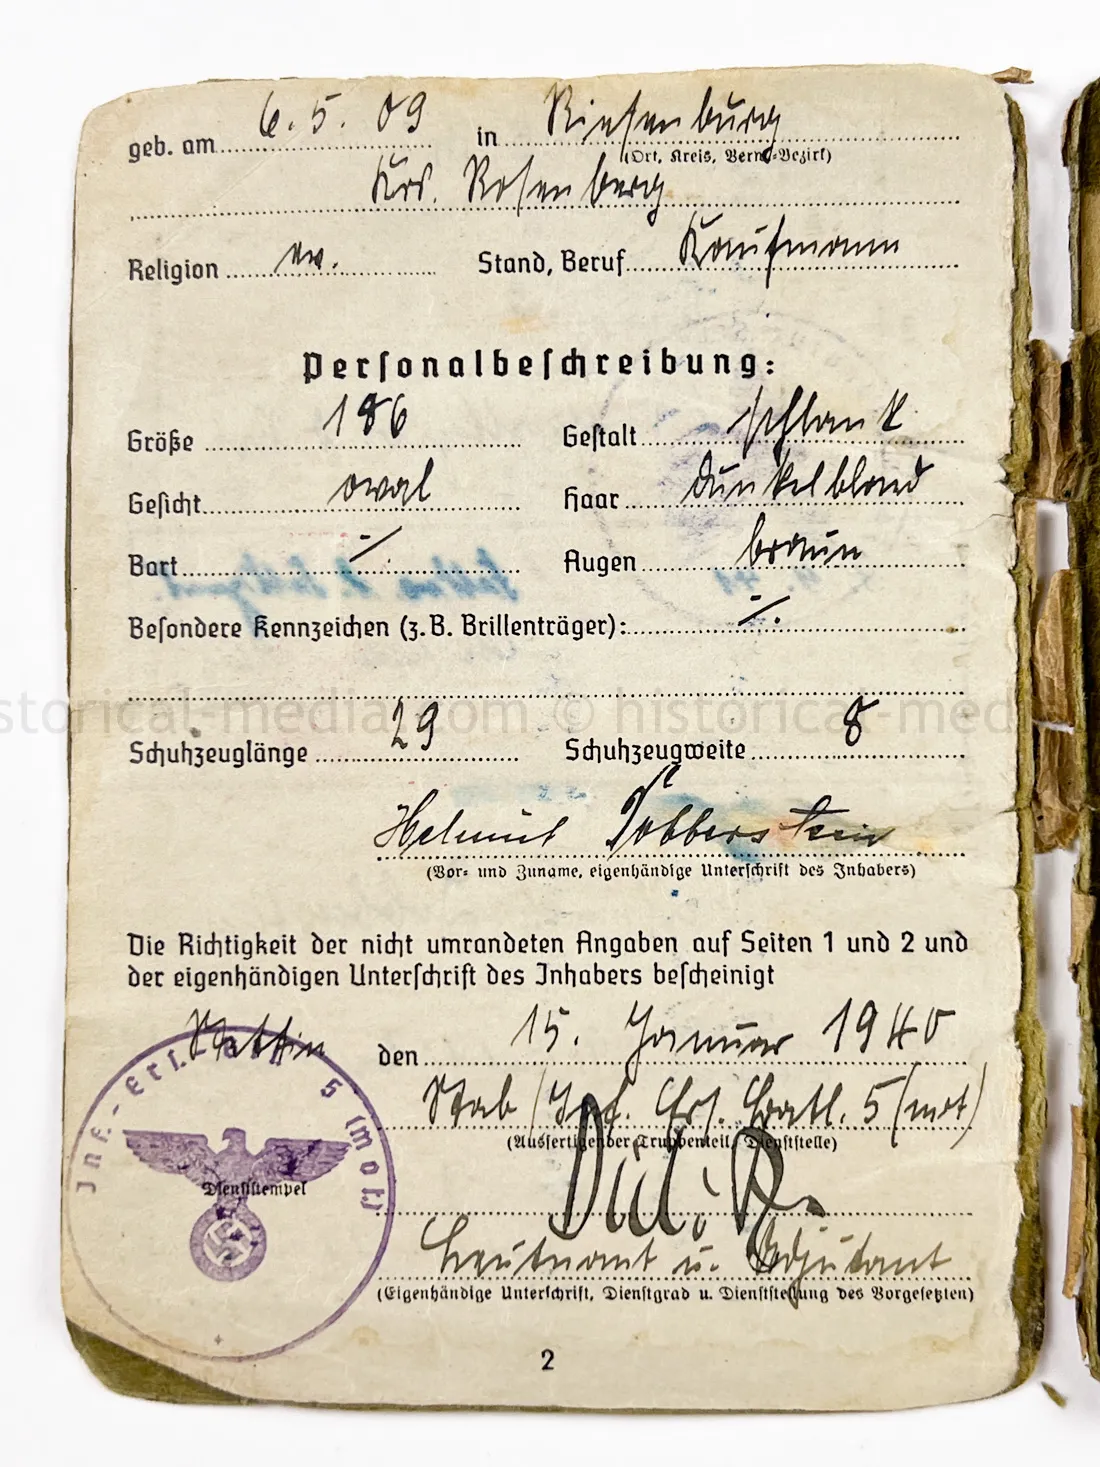 geb. am 6.5.09 in Riesenburg
(Ort, Kreis, Verw.-Bezirk)
Krs. Rosenberg
Religion ev. Stand, Beruf Kaufmann
Personalbeschreibung:
Größe 186 Gestalt schlank
Gesicht oval Haar dunkelblond
Bart -/. Augen braun
Besondere Kennzeichen (z.B. Brillenträger): -/.
historical-media.com © historical-med
Schuhzeuglänge 29 Schuhzeugweite 8
Helmut Tobberstein
(Vor- und Zuname, eigenhändige Unterschrift des Inhabers)
Die Richtigkeit der nicht umrandeten Angaben auf Seiten 1 und 2 und
der eigenhändigen Unterschrift des Inhabers bescheinigt
Stettin den 15. Januar 1940
Stab/Inf. Ers. Batl. 5 (mot)
(Ausfertigender Truppenteil, Dienststelle)
Inf.-Ers. 5 (mot)
Dienststempel
Leutnant u. Adjutant
(Eigenhändige Unterschrift, Dienstgrad u. Dienststellung des Vorgesetzten)
2